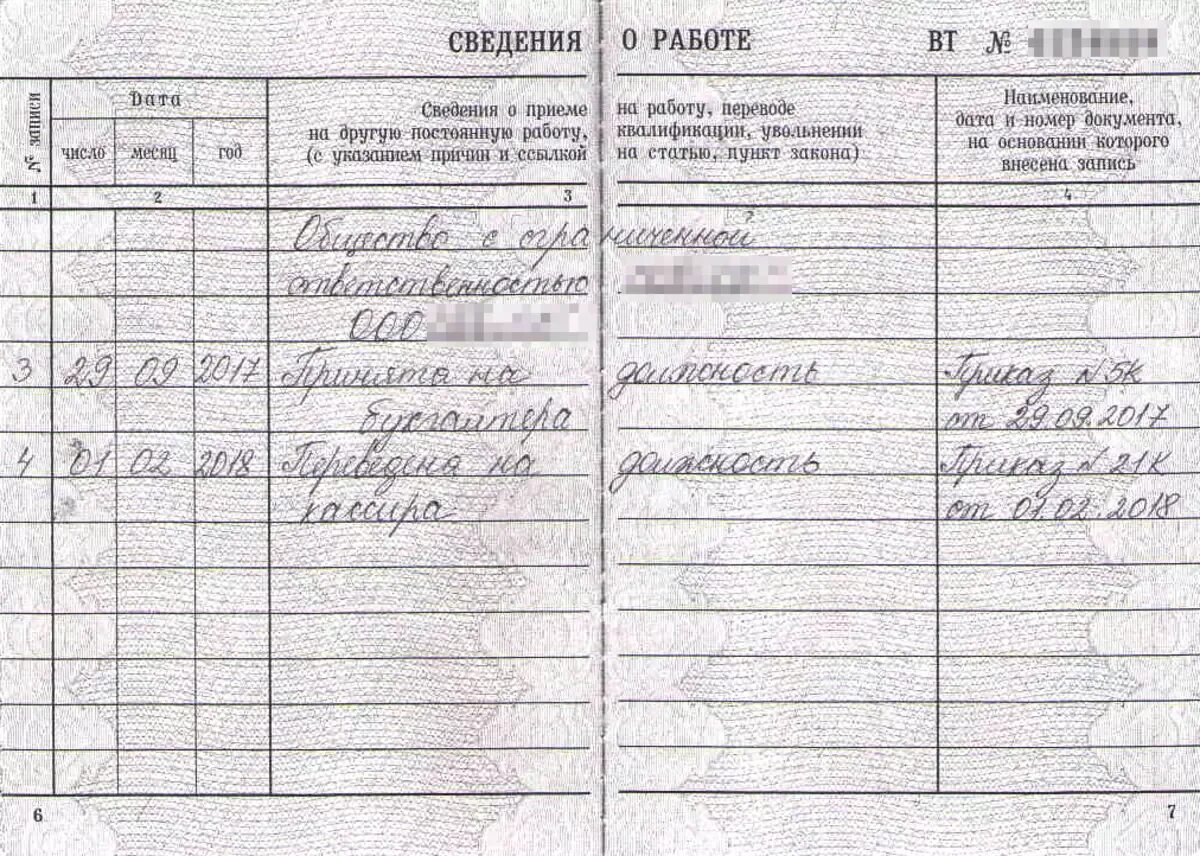 СВЕДЕНИЯ О РАБОТЕ ВТ №
№ записи
Дата
число месяц год
Сведения о приеме на работу, переводе
на другую постоянную работу, квалификации, увольнении
(с указанием причин и ссылкой на статью, пункт закона)
Наименование,
дата и номер документа,
на основании которого
внесена запись
1 2 3 4
Общество с ограниченной
ответственностью
ООО
3 29 09 2017 Принята на должность Приказ N 5К
бухгалтера от 29.09.2017
4 01 02 2018 Переведена на должность Приказ N 21К
кассира от 01.02.2018
6 7